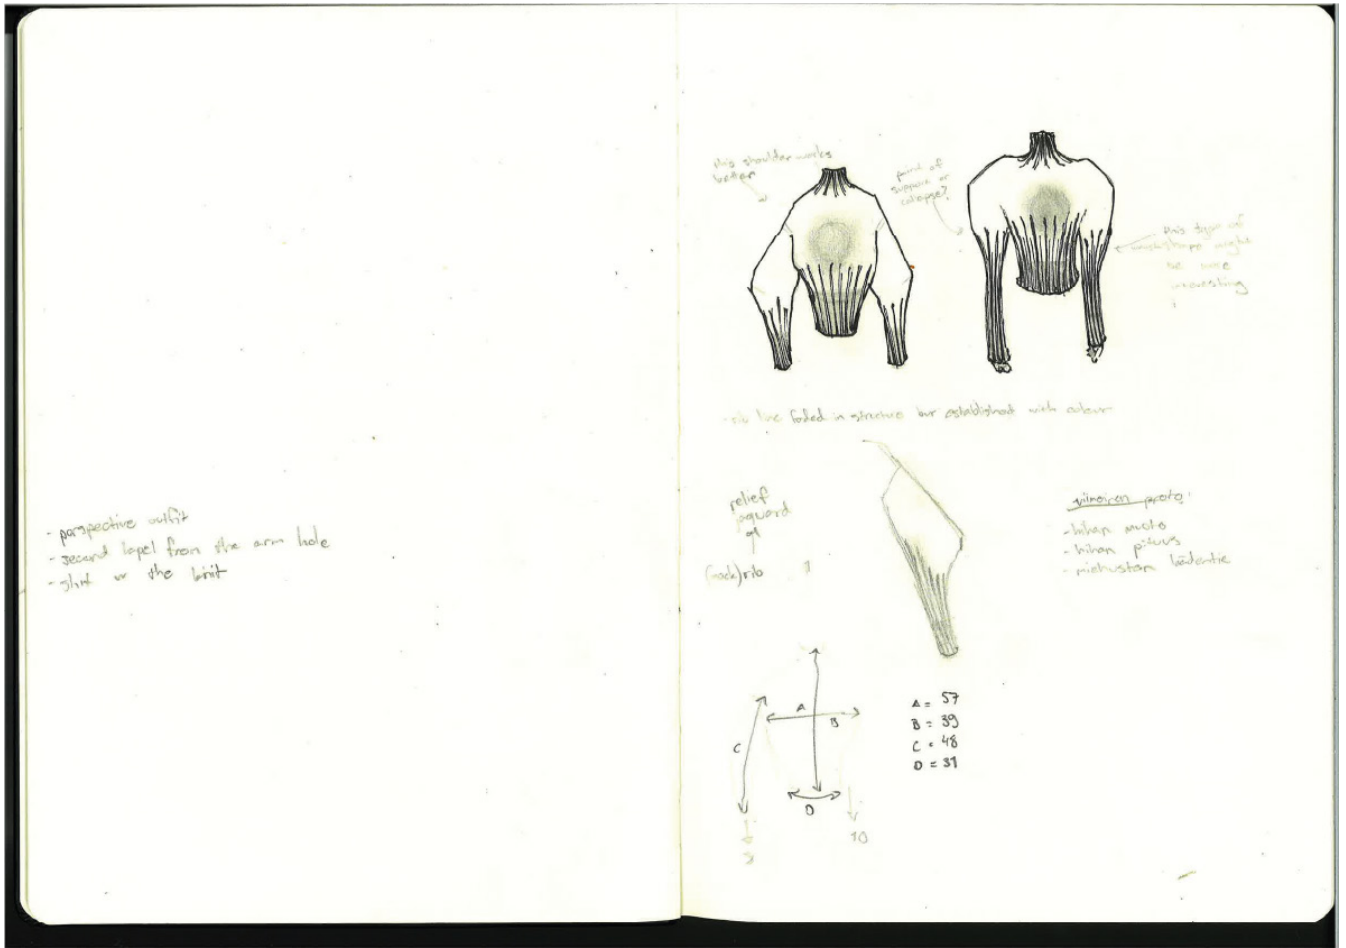 - perspective outfit
- second lapel from the arm hole
- the knit
this shoulder works
better
point of
support or
collapse?
this type of
might
be more
interesting
- rib line faded in structure but established with colour
relief
jaquard
(mock)rib
viimeinen proto:
- hihan muoto
- hihan pituus
- miehustan
A
B
C
D
10
A = 57
B = 39
C = 48
D = 31